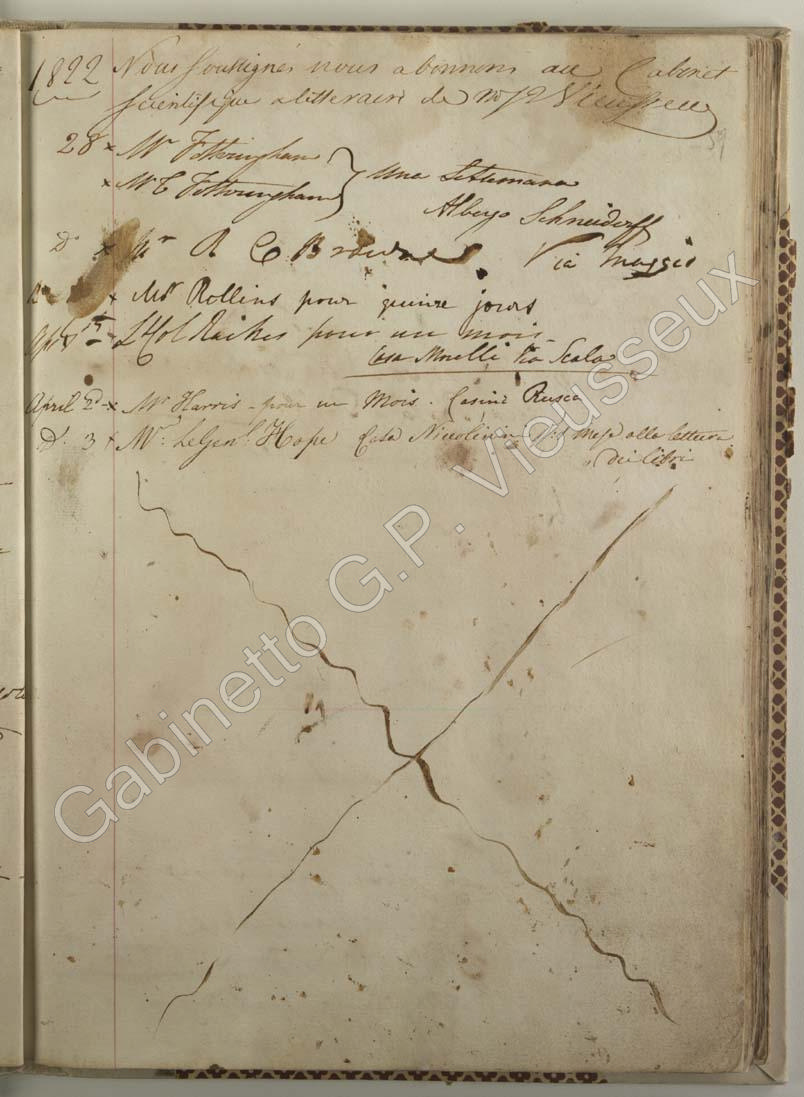 1822 Nous soussignés nous abonnons au Cabinet
scientifique & litteraire de Mr J P Vieusseux
39
28 x Mr Fotheringham
x Mr T Fotheringham } Una Settimana
Albergo Schneidorff
Do x Mr R C Browne Via Maggio
x Mr Rollins pour quinze jours
Apl 1st - Lt Col Raikes pour un mois -
Casa Morelli Via Scala
April 2d - x Mr Harris - pour un Mois. Casino Rusca
Do. 3 x Mr. Le Genl. Hope Casa Nicolini un mese alla lettura
dei libri
Gabinetto G.P. Vieusseux